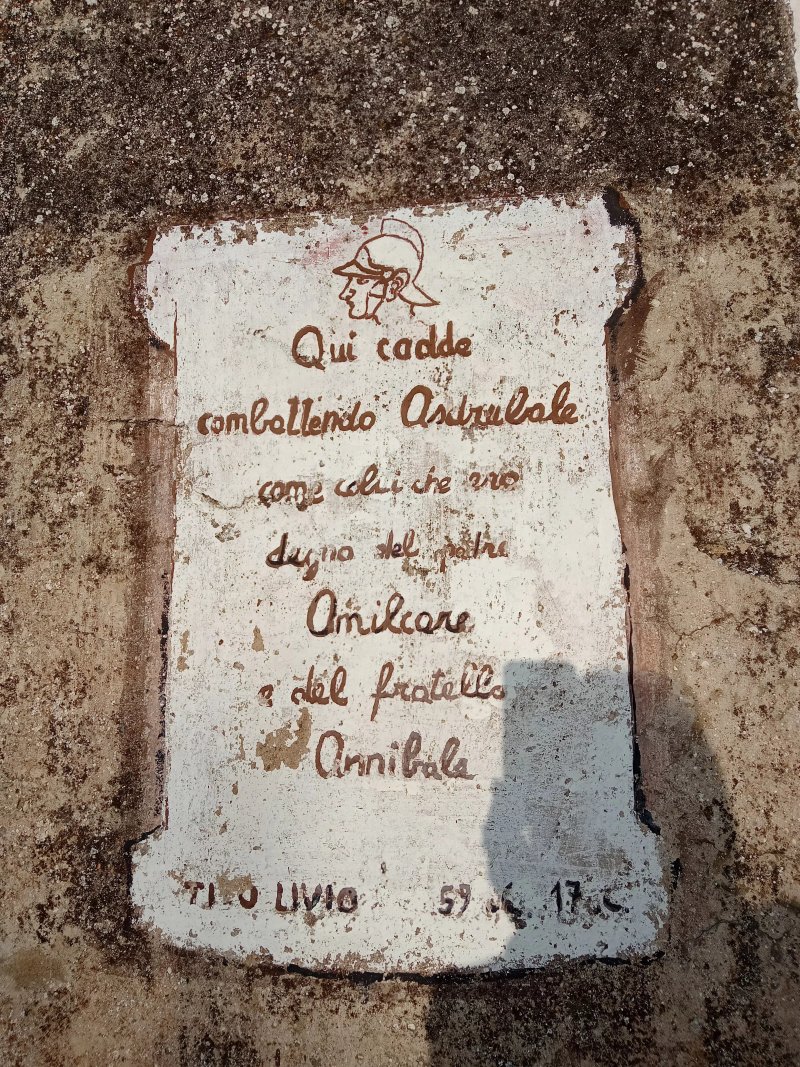 Qui cadde
combattendo Asdrubale
come colui che ero
degno del padre
Amilcare
e del fratello
Annibale
TITO LIVIO 59 a.C. 17 d.C.